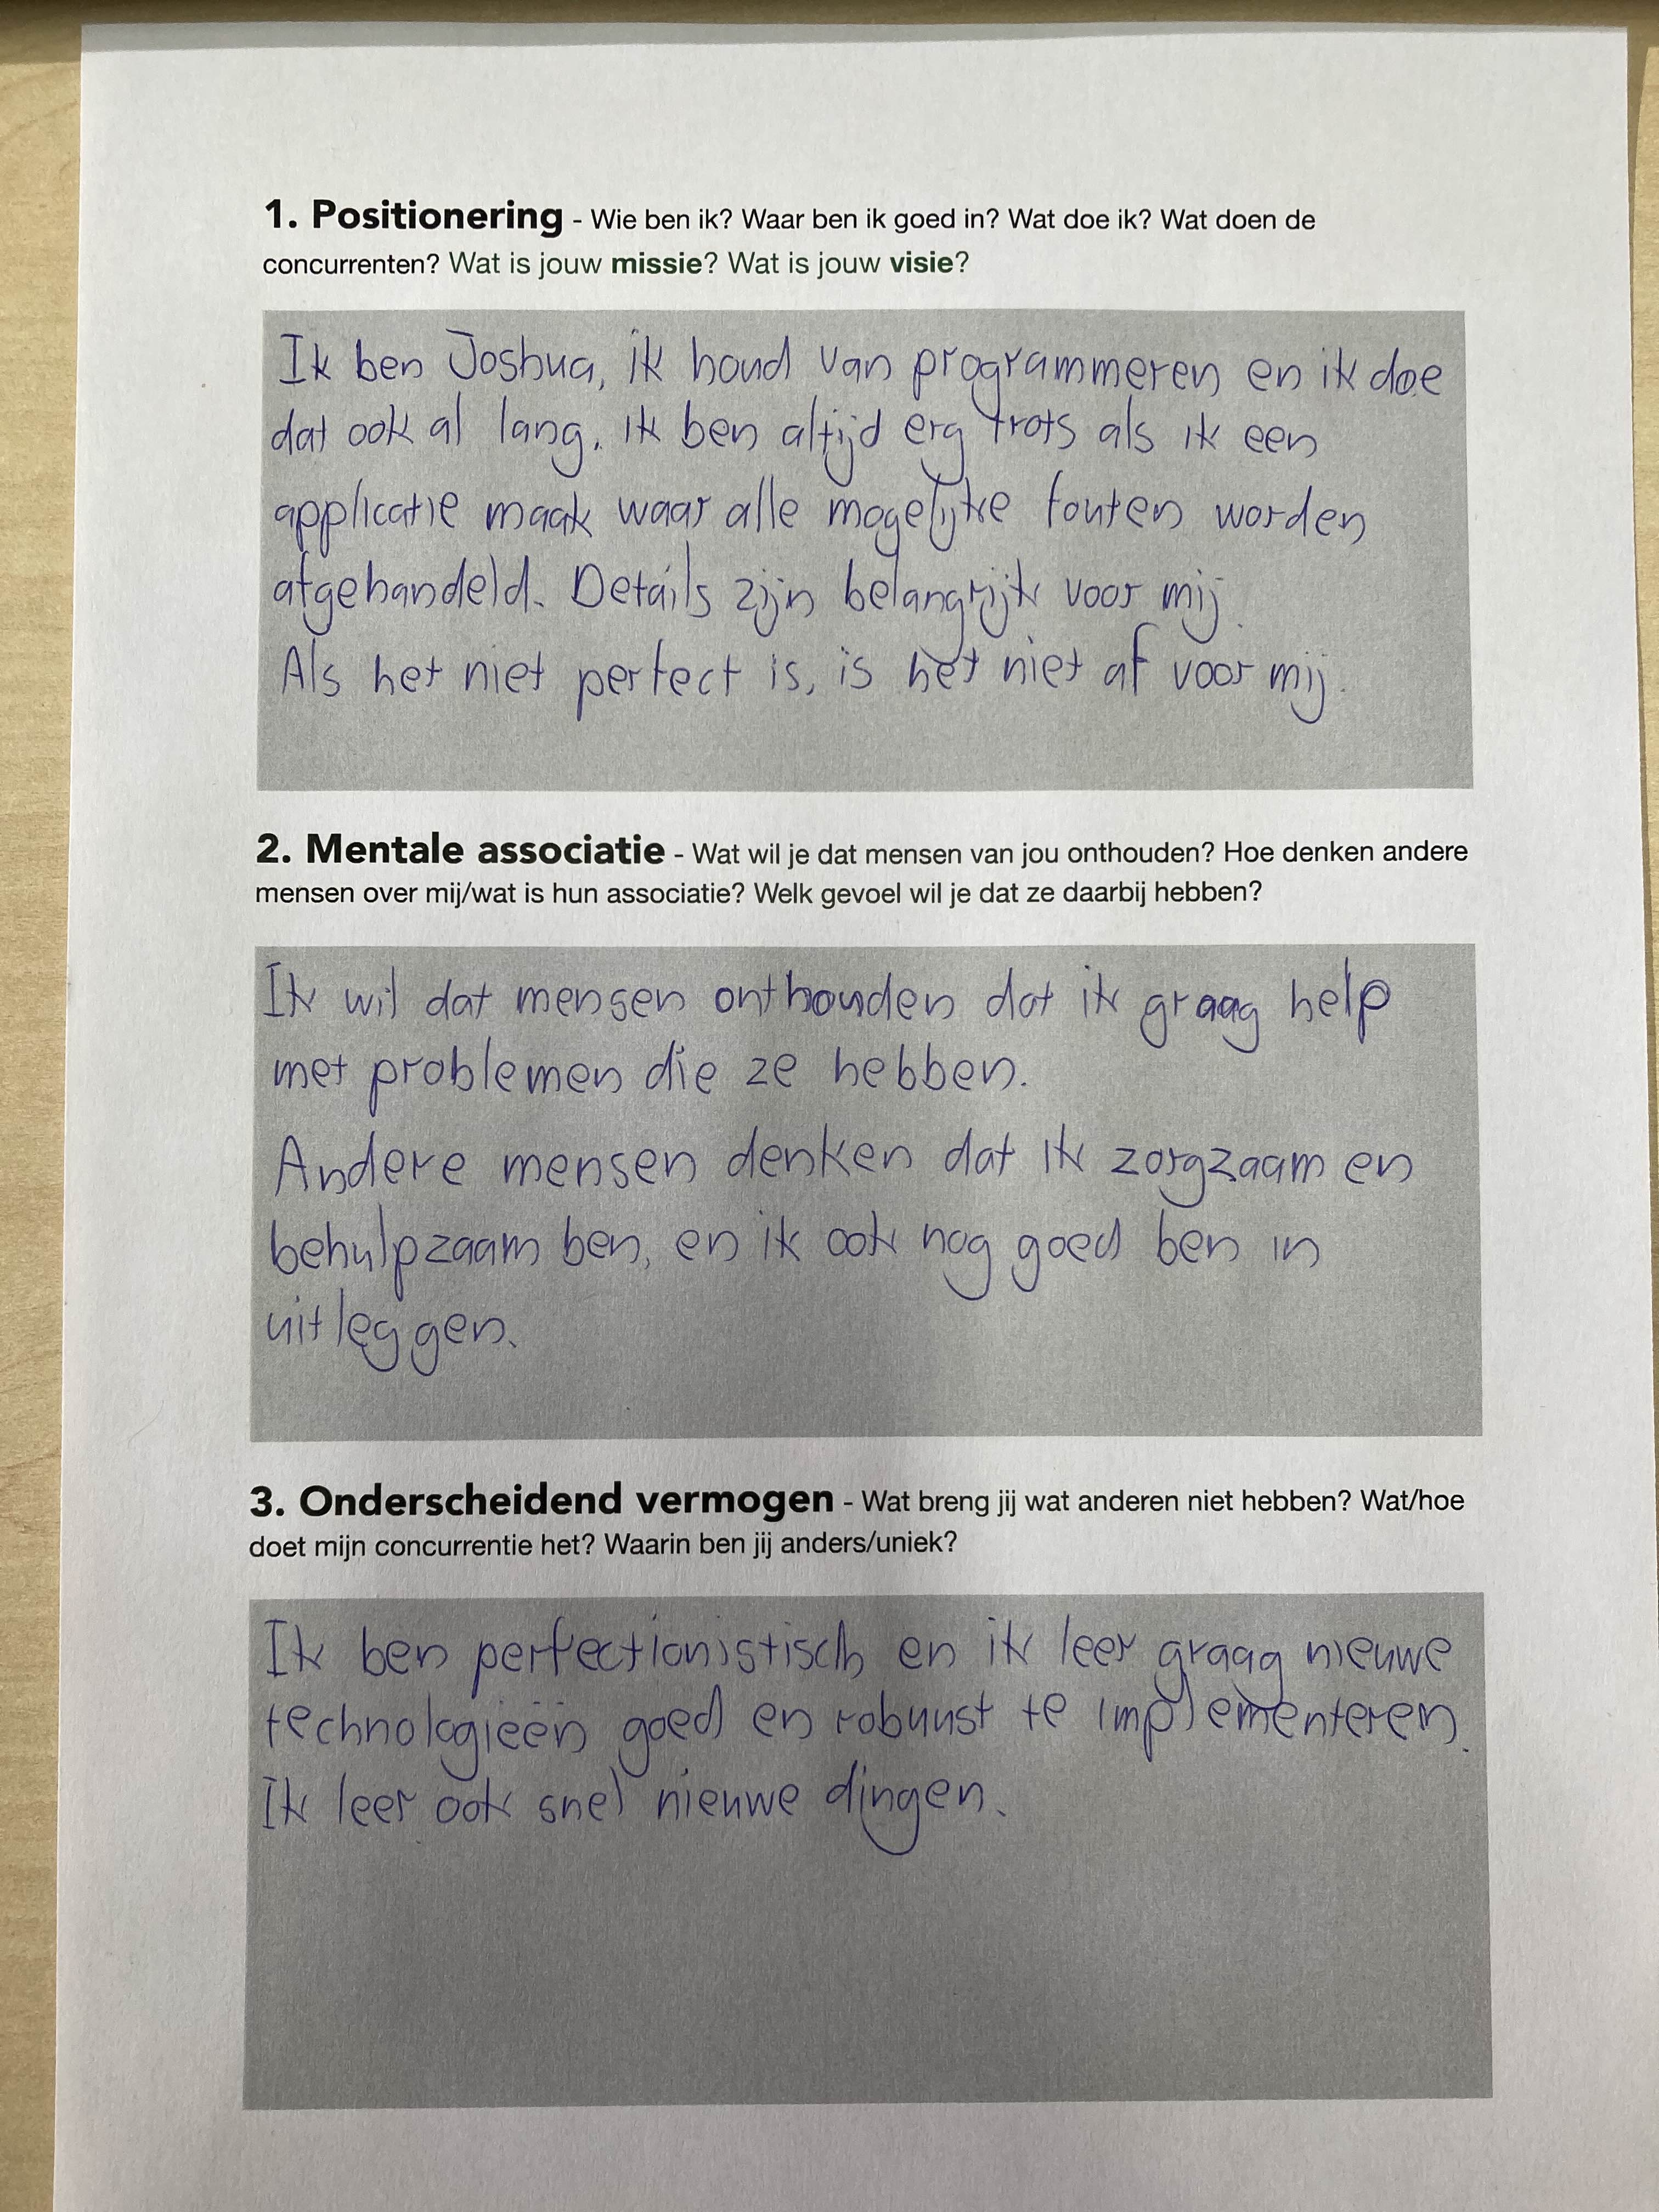 1. Positionering - Wie ben ik? Waar ben ik goed in? Wat doe ik? Wat doen de
concurrenten? Wat is jouw missie? Wat is jouw visie?
Ik ben Joshua, ik houd van programmeren en ik doe
dat ook al lang. ik ben altijd erg trots als ik een
applicatie maak waar alle mogelijke fouten worden
afgehandeld. Details zijn belangrijk voor mij.
Als het niet perfect is, is het niet af voor mij.
2. Mentale associatie - Wat wil je dat mensen van jou onthouden? Hoe denken andere
mensen over mij/wat is hun associatie? Welk gevoel wil je dat ze daarbij hebben?
Ik wil dat mensen onthouden dat ik graag help
met problemen die ze hebben.
Andere mensen denken dat ik zorgzaam en
behulpzaam ben, en ik ook nog goed ben in
uitleggen.
3. Onderscheidend vermogen - Wat breng jij wat anderen niet hebben? Wat/hoe
doet mijn concurrentie het? Waarin ben jij anders/uniek?
Ik ben perfectionistisch en ik leer graag nieuwe
technologieën goed en robuust te implementeren.
Ik leer ook snel nieuwe dingen.